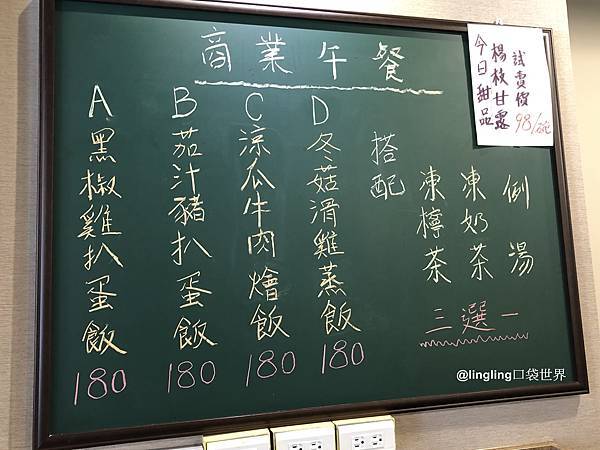 商業午餐
A 黑椒雞扒蛋飯 180
B 茄汁豬扒蛋飯 180
C 涼瓜牛肉燴飯 180
D 冬菇滑雞蒸飯 180
搭配
凍檸茶
凍奶茶
例湯
三選一
今日甜品
楊枝甘露
試賣價
98/
@lingling口袋世界